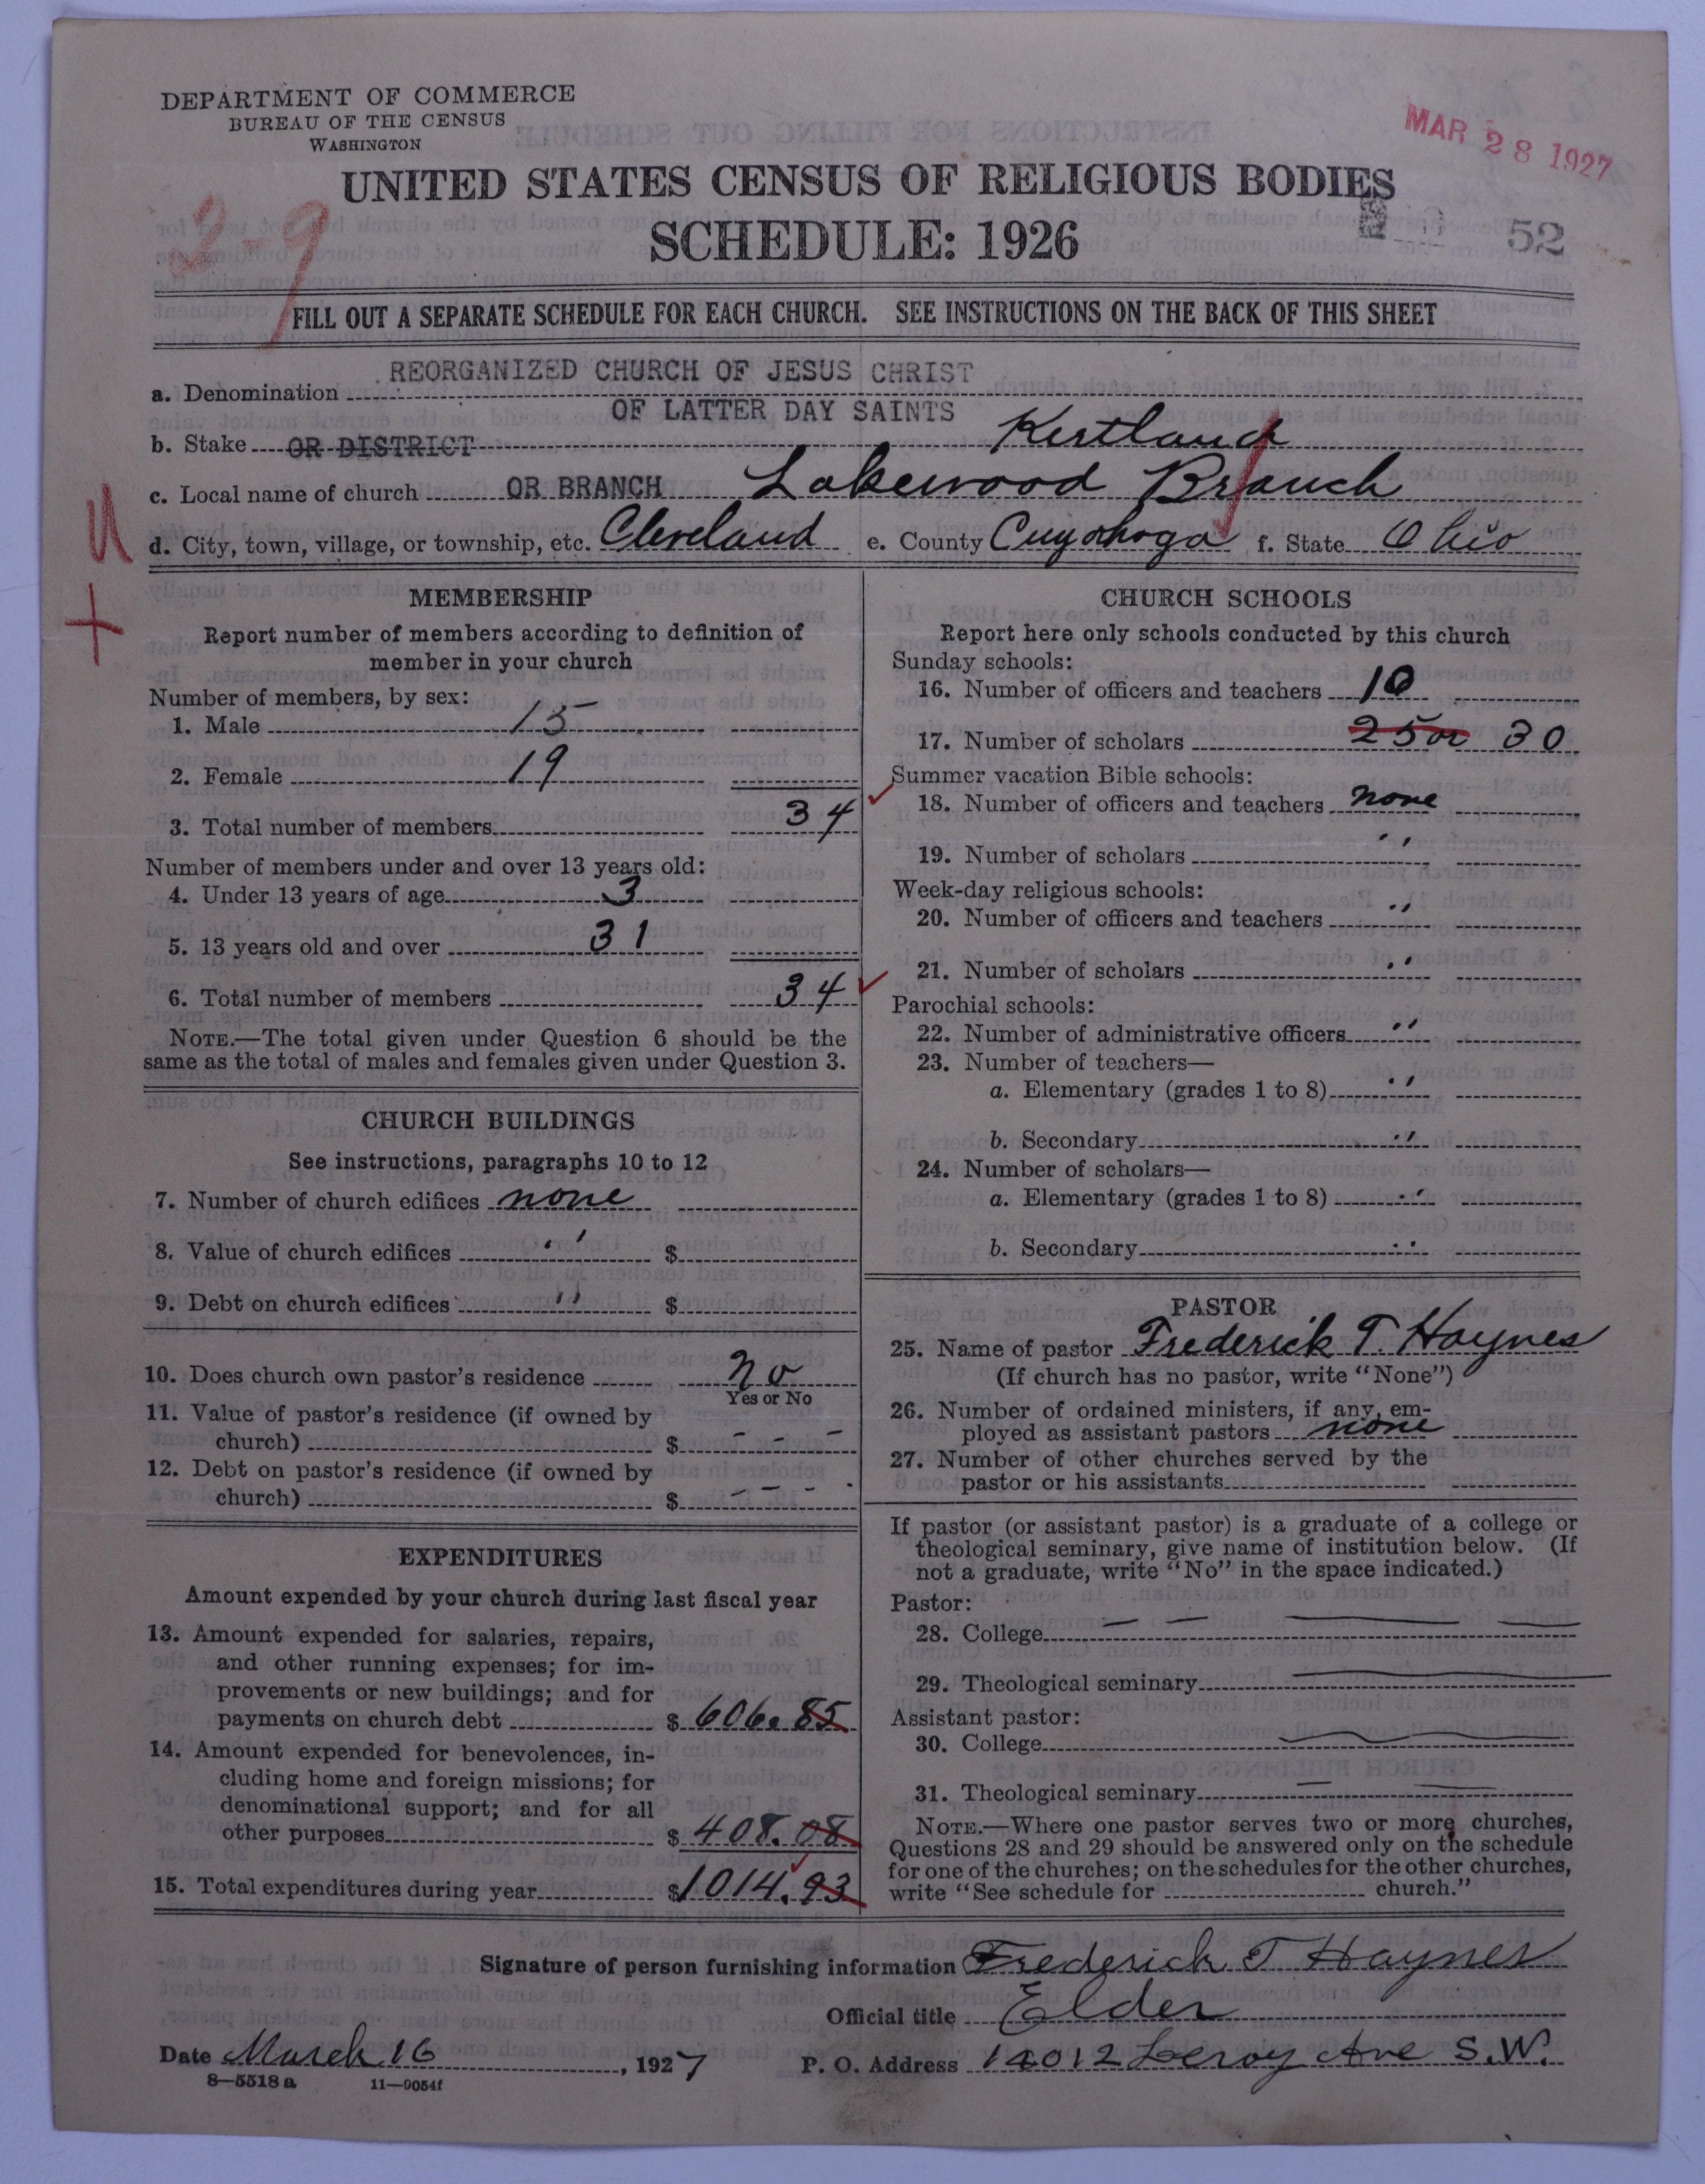 DEPARTMENT OF COMMERCE
BUREAU OF THE CENSUS
WASHINGTON
MAR 28 1927
UNITED STATES CENSUS OF RELIGIOUS BODIES
SCHEDULE: 1926
52
2-9
FILL OUT A SEPARATE SCHEDULE FOR EACH CHURCH. SEE INSTRUCTIONS ON THE BACK OF THIS SHEET
a. Denomination REORGANIZED CHURCH OF JESUS CHRIST
OF LATTER DAY SAINTS
b. Stake OR DISTRICT Kirtland
c. Local name of church OR BRANCH Lakewood Branch
d. City, town, village, or township, etc. Cleveland e. County Cuyahoga f. State Ohio
U
+
MEMBERSHIP
Report number of members according to definition of
member in your church
Number of members, by sex:
1. Male 15
2. Female 19
3. Total number of members 34
Number of members under and over 13 years old:
4. Under 13 years of age 3
5. 13 years old and over 31
6. Total number of members 34
NOTE.—The total given under Question 6 should be the
same as the total of males and females given under Question 3.
CHURCH BUILDINGS
See instructions, paragraphs 10 to 12
7. Number of church edifices none
8. Value of church edifices " $
9. Debt on church edifices " $
10. Does church own pastor's residence No
Yes or No
11. Value of pastor's residence (if owned by
church) $ - - -
12. Debt on pastor's residence (if owned by
church) $ - - - -
EXPENDITURES
Amount expended by your church during last fiscal year
13. Amount expended for salaries, repairs,
and other running expenses; for im-
provements or new buildings; and for
payments on church debt $ 606.85
14. Amount expended for benevolences, in-
cluding home and foreign missions; for
denominational support; and for all
other purposes $ 408.08
15. Total expenditures during year $1014.93
CHURCH SCHOOLS
Report here only schools conducted by this church
Sunday schools:
16. Number of officers and teachers 10
17. Number of scholars 25 or 30
Summer vacation Bible schools:
18. Number of officers and teachers none
19. Number of scholars "
Week-day religious schools:
20. Number of officers and teachers "
21. Number of scholars "
Parochial schools:
22. Number of administrative officers "
23. Number of teachers—
a. Elementary (grades 1 to 8) "
b. Secondary "
24. Number of scholars—
a. Elementary (grades 1 to 8) "
b. Secondary "
PASTOR
25. Name of pastor Frederick T. Haynes
(If church has no pastor, write "None")
26. Number of ordained ministers, if any, em-
ployed as assistant pastors none
27. Number of other churches served by the
pastor or his assistants
If pastor (or assistant pastor) is a graduate of a college or
theological seminary, give name of institution below. (If
not a graduate, write "No" in the space indicated.)
Pastor:
28. College
29. Theological seminary
Assistant pastor:
30. College
31. Theological seminary
NOTE.—Where one pastor serves two or more churches,
Questions 28 and 29 should be answered only on the schedule
for one of the churches; on the schedules for the other churches,
write "See schedule for church."
Signature of person furnishing information Frederick T Haynes
Official title Elder
Date March 16, 1927 P. O. Address 14012 Leroy Ave S.W.
8—5518 a 11—9054f